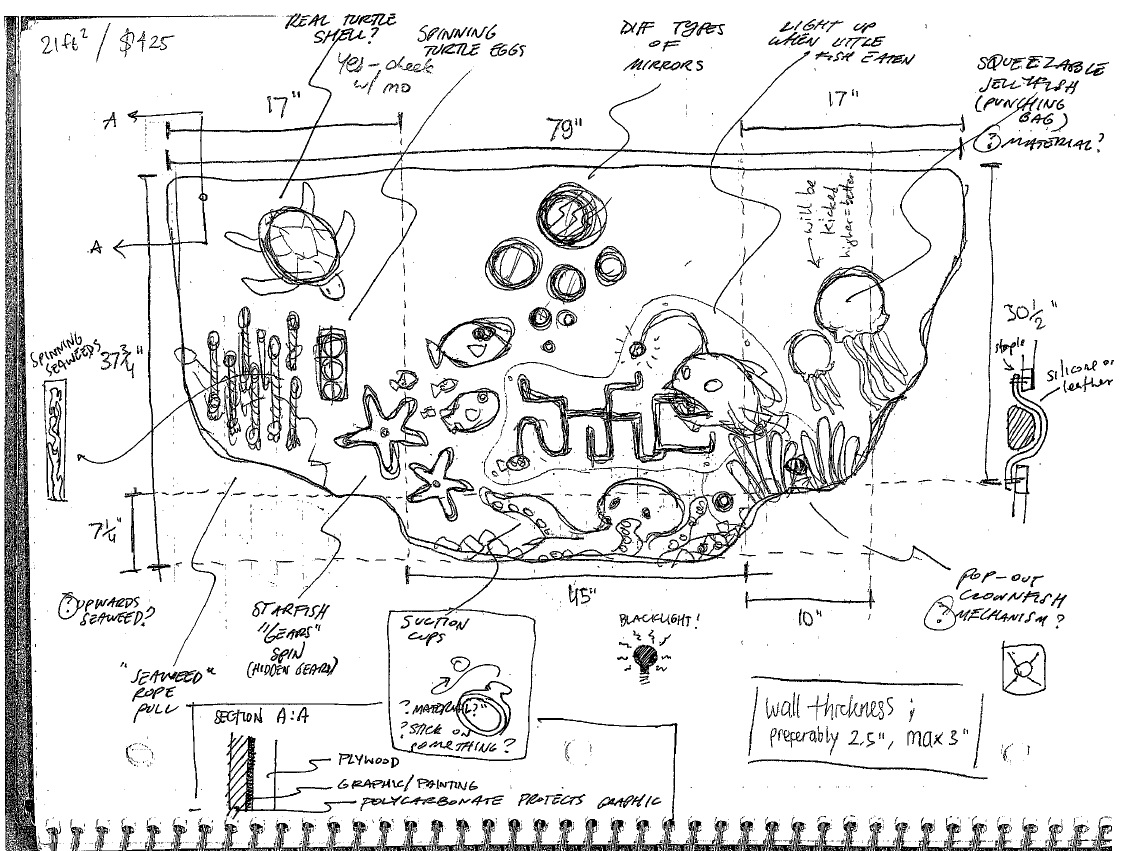 21ft² / $425
REAL TURTLE
SHELL?
Yes - check
w/ mo
SPINNING
TURTLE EGGS
DIFF TYPES
OF
MIRRORS
LIGHT UP
WHEN LITTLE
FISH EATEN
SQUEEZABLE
JELLYFISH
(PUNCHING
BAG)
? MATERIAL?
A
17"
79"
17"
A
will be
kicked
higher = better
SPINNING
SEAWEEDS
37 3/4"
30 1/2"
staple
silicone or
leather
7 1/4"
45"
10"
? UPWARDS
SEAWEED?
"SEAWEED"
ROPE
PULL
STARFISH
"GEARS"
SPIN
(HIDDEN GEARS)
SUCTION
CUPS
? MATERIAL?
? STICK ON
SOMETHING?
BLACKLIGHT!
POP-OUT
CLOWNFISH
? MECHANISM?
wall thickness;
preferably 2.5", max 3"
SECTION A:A
PLYWOOD
GRAPHIC/PAINTING
POLYCARBONATE PROTECTS GRAPHIC